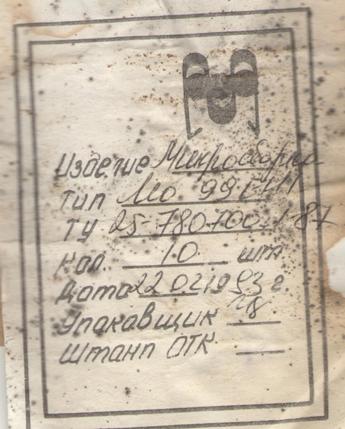 Изделие Микросборки
Тип
ТУ 25-780700.1-87
Кол. 10 шт
Дата 22 02 1993 г
Упаковщик
Штамп ОТК